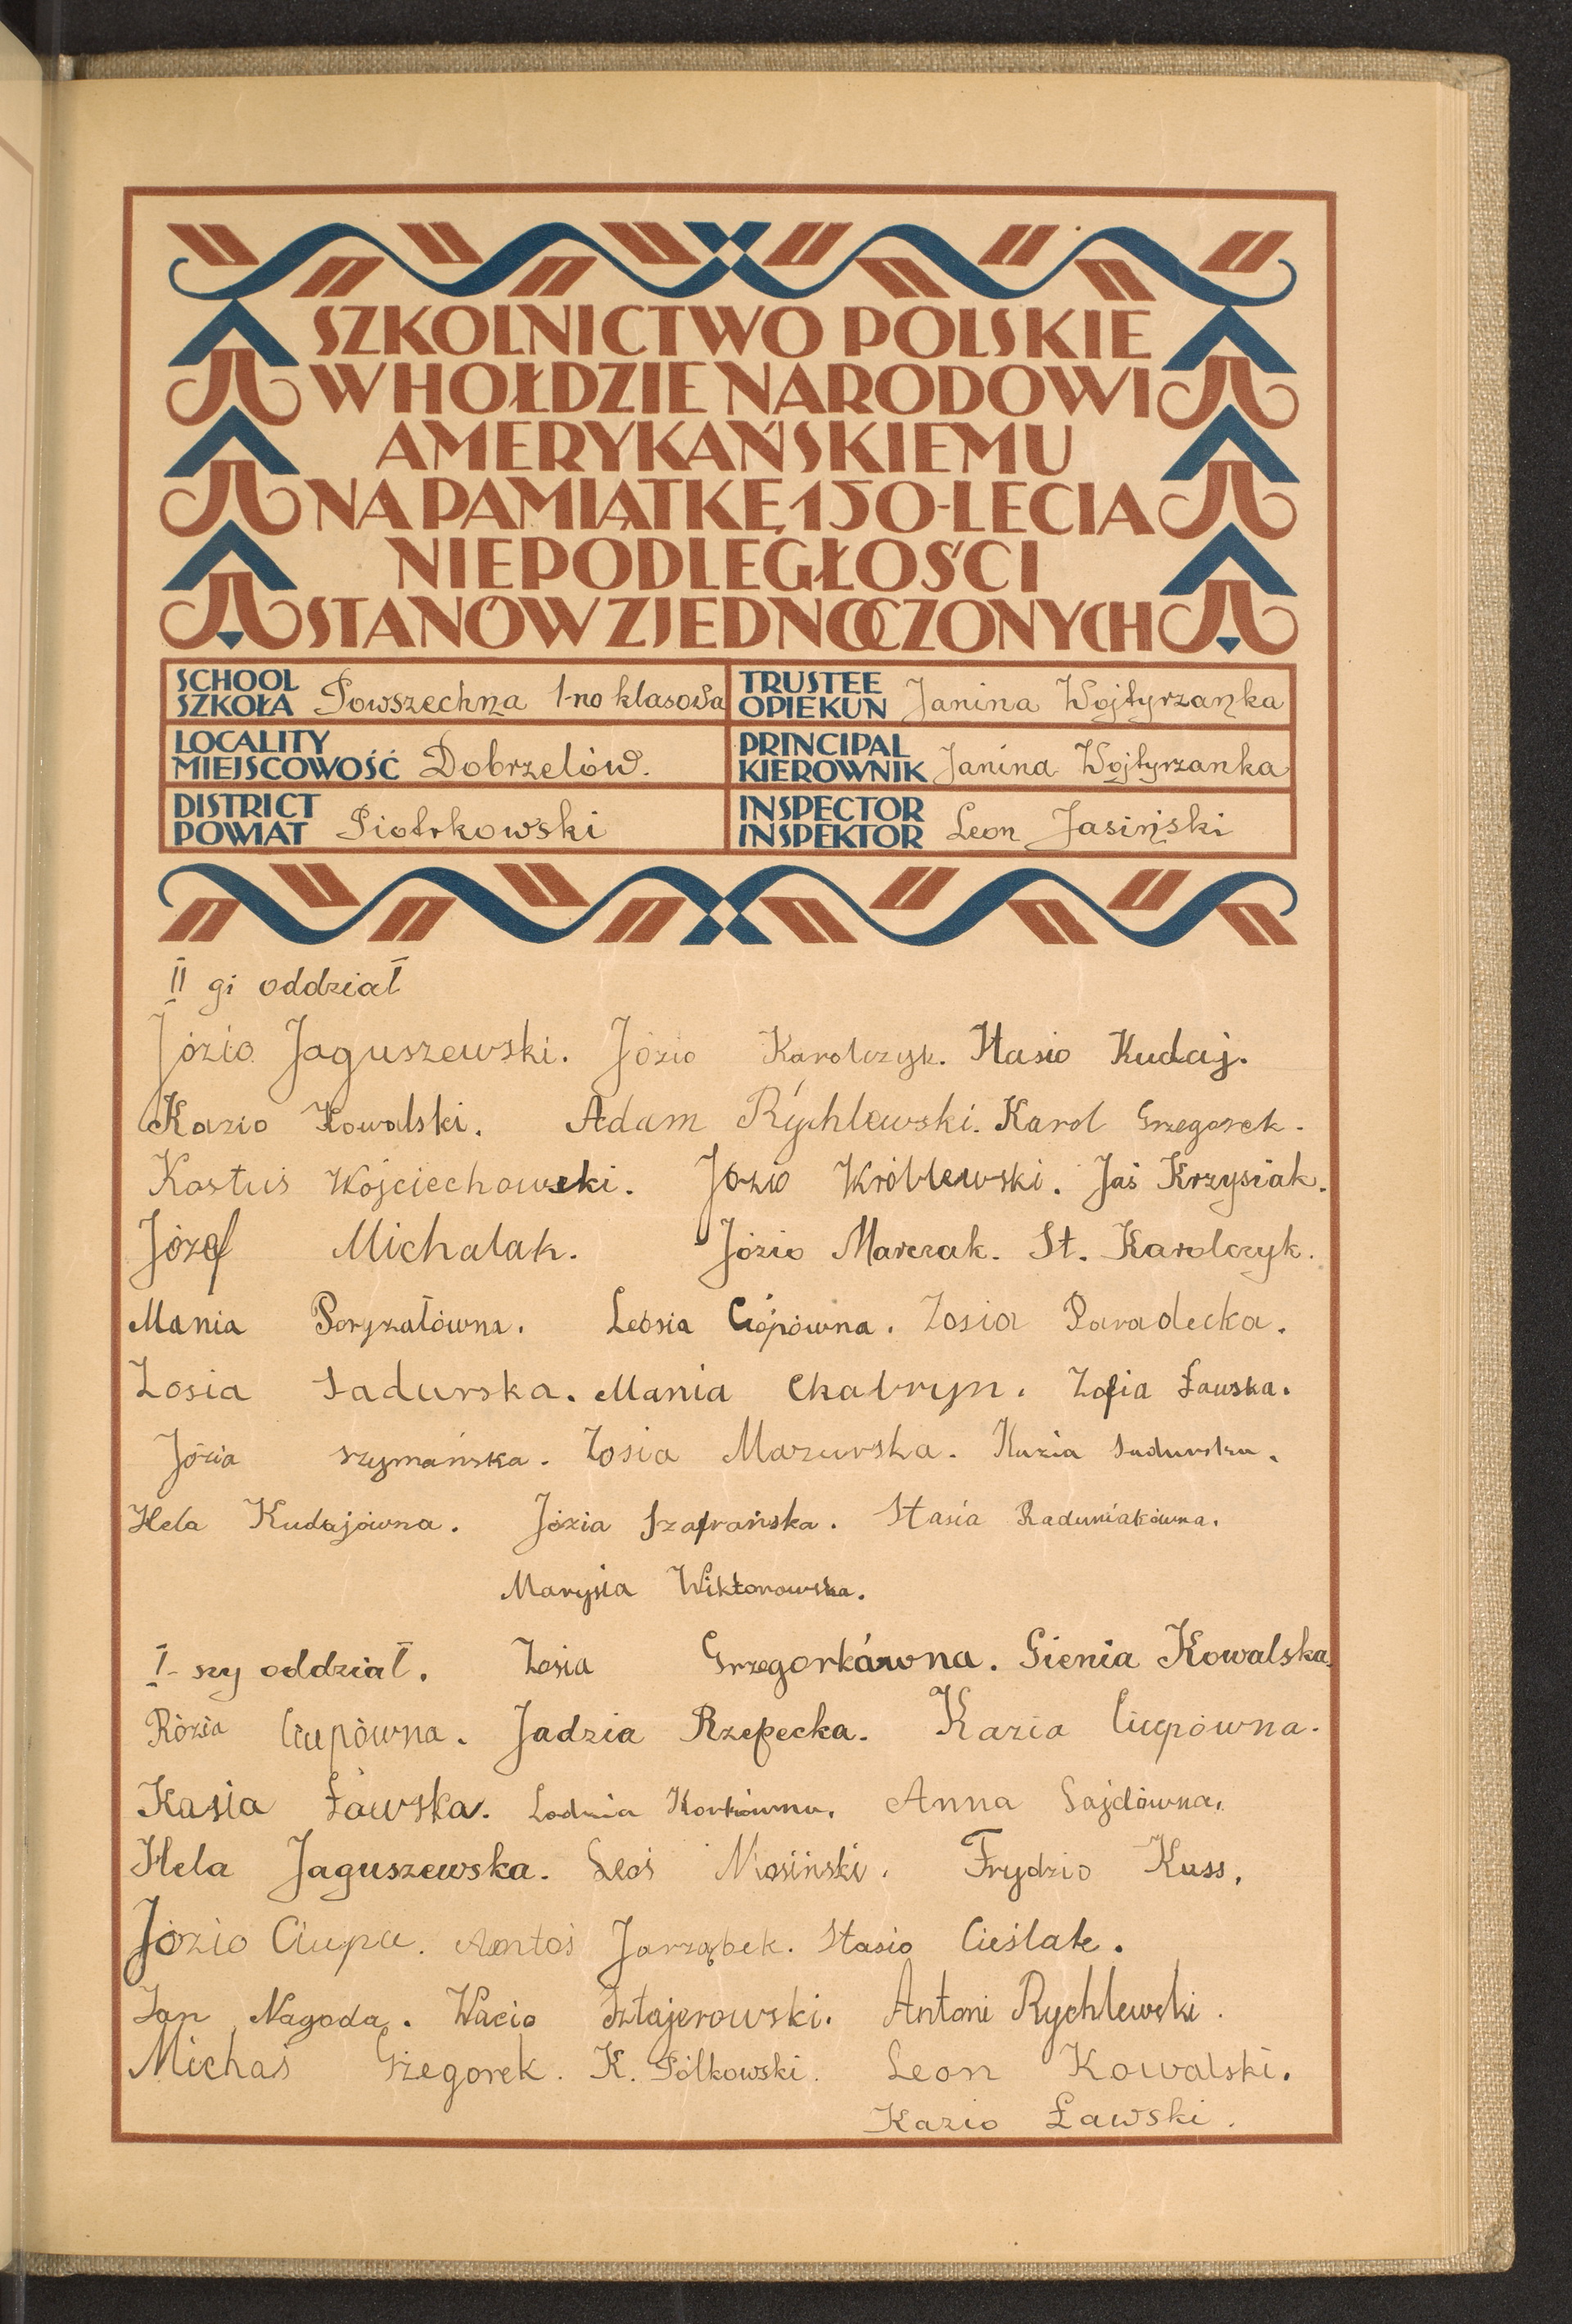 SZKOLNICTWO POLSKIE
W HOŁDZIE NARODOWI
AMERYKAŃSKIEMU
NA PAMIĄTKĘ 150-LECIA
NIEPODLEGŁOŚCI
STANÓW ZJEDNOCZONYCH
SCHOOL SZKOŁA Powszechna 1-no klasowa
TRUSTEE OPIEKUN Janina Wojtyrzanka
LOCALITY MIEJSCOWOŚĆ Dobrzelów.
PRINCIPAL KIEROWNIK Janina Wojtyrzanka
DISTRICT POWIAT Piotrkowski
INSPECTOR INSPEKTOR Leon Jasiński
II gi oddział
Józio Jaguszewski. Józio Karolczyk. Stasio Kudaj.
Kazio Kowalski. Adam Rychlewski. Karol Grzegorek.
Kostuś Wojciechowski. Józio Wróblewski. Jaś Krzysiak.
Józef Michalak. Józio Marczak. St. Karolczyk.
Mania Poryzałówna. Leosia Ciópówna. Zosia Paradecka.
Zosia Sadurska. Mania Chabryn. Zofia Ławska.
Józia Szymańska. Zosia Mazurska. Kazia Sadurska.
Hela Kudajówna. Józia Szafrańska. Stasia Raduniakówna.
Marysia Wiktorowska.
I-szy oddział. Zosia Grzegorkówna. Gienia Kowalska.
Rózia Ciupówna. Jadzia Rzepecka. Kazia Ciupówna.
Kasia Ławska. Lodzia Korkówna. Anna Gajdówna.
Hela Jaguszewska. Leoś Nosiński. Frydzio Kuss.
Józio Ciupa. Antoś Jarząbek. Stasio Cieślak.
Jan Nagoda. Wacio Sztajerowski. Antoni Rychlewski.
Michaś Grzegorek. K. Pólkowski. Leon Kowalski.
Kazio Ławski.